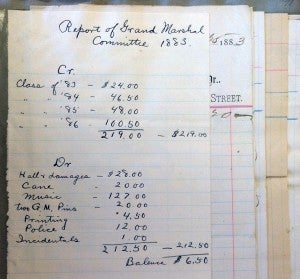 Report of Grand Marshal
Committee 1883.
Cr.
Class of '83 - $24.00
" " '84 - 46.50
" " '85 - 48.00
" " '86 - 100.50
219.00 - $219.00
Dr
Hall & damages - $28.00
Cane - 20.00
Music - 127.00
two G.M. Pins - 20.00
Printing - 4.50
Police 12.00
Incidentals 1.00
212.50 - 212.50
Balance $6.50
1883
Dr..
STREET.